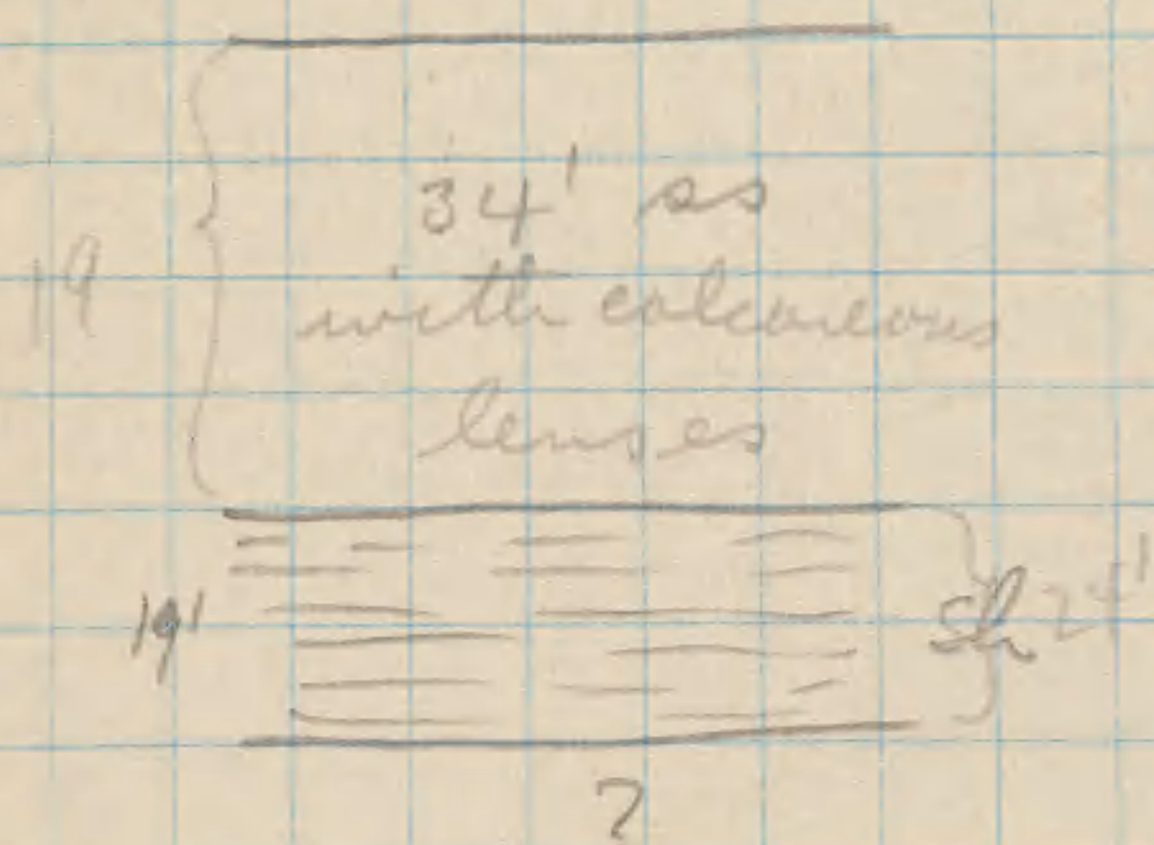 34' ss
19
with calcareous
lenses
19'
Sh 24'
?